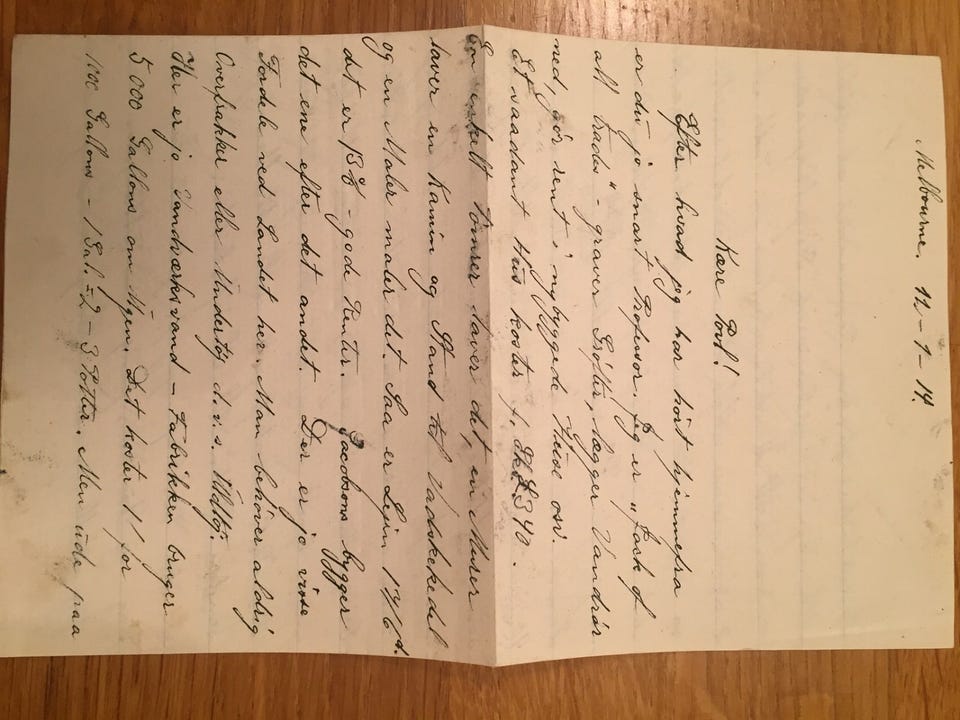 Melbourne. 12-1-14
Kære Povl!
Efter hvad jeg har hört hjemmefra
er du jo snart Professor. Jeg er „Jack of
all trads" - graver Gröfter, lægger Vandrör
ned, gör rent i nybyggede Huse osv.
Et saadant Hus koster f. Eks £ 340.
En enkelt Tömrer laver det, en Murer
laver en Kamin og Stand til Vadskekedel
og en Maler maler det. Saa er Lejen 17/6 d.
det er 13% - gode Renter. Jacobsons bygger
det ene efter det andet. Der er jo visse
Fordele ved Landet her. Man behöver aldrig
Overfrakke eller Undertöj d.v.s. Uldtöj.
Her er jo Vandværksvand - Fabrikken bruger
5000 Gallons om Ugen. Det koster 1/ for
1000 Gallons - 1 Gal. = 2 - 3 Potter. Men ude paa